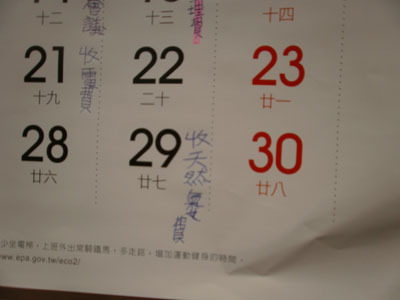 十二 十三 十四
21 22 23
收電費
十九 二十 廿一
28 29 30
收天然氣費
廿六 廿七 廿八
少坐電梯,上班外出常騎鐵馬,多走路,增加運動健身的時間。
www.epa.gov.tw/eco2/